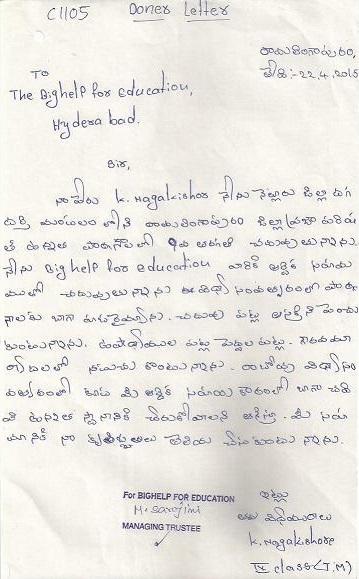 C1105 Doner Letter
రామలింగాపురం,
తేది:-22.4.2015
To
The Bighelp for education,
Hyderabad.
Sir,
నా పేరు K. Nagakishor నేను నెల్లూరు జిల్లా దగ
దర్తి మండలం లోని రామలింగాపురం జిల్లా ప్రజా పరిష
త్ ఉన్నత పాఠశాలలో 9వ తరగతి చదువుచున్నాను.
నేను Bighelp for education వారికి ఆర్థిక సహాయ
ములో చదువుచున్నాను ఈ విద్యా సంవత్సరంలో పాఠ
చదువు పట్ల ఆసక్తిని పెంచు
కుంటున్నాను. ఉపాధ్యాయుల పట్ల పెద్దల పట్ల. గౌరవమర్
కొంటున్నాను. రాబోవు విద్యాసం
వత్సరంలో కూడ మీ ఆర్థిక సహాయ బాగా చది
వి ఉన్నత స్థానానికి చేరుకోవాలని మీ సహా
యానికి నా కృతజ్ఞతలు తెలియ చేసుకుంటున్నాను.
For BIGHELP FOR EDUCATION
M. Sarojini
MANAGING TRUSTEE
ఇట్లు
తమ విధేయురాలు
K. Nagakishore
IX class (T.M)